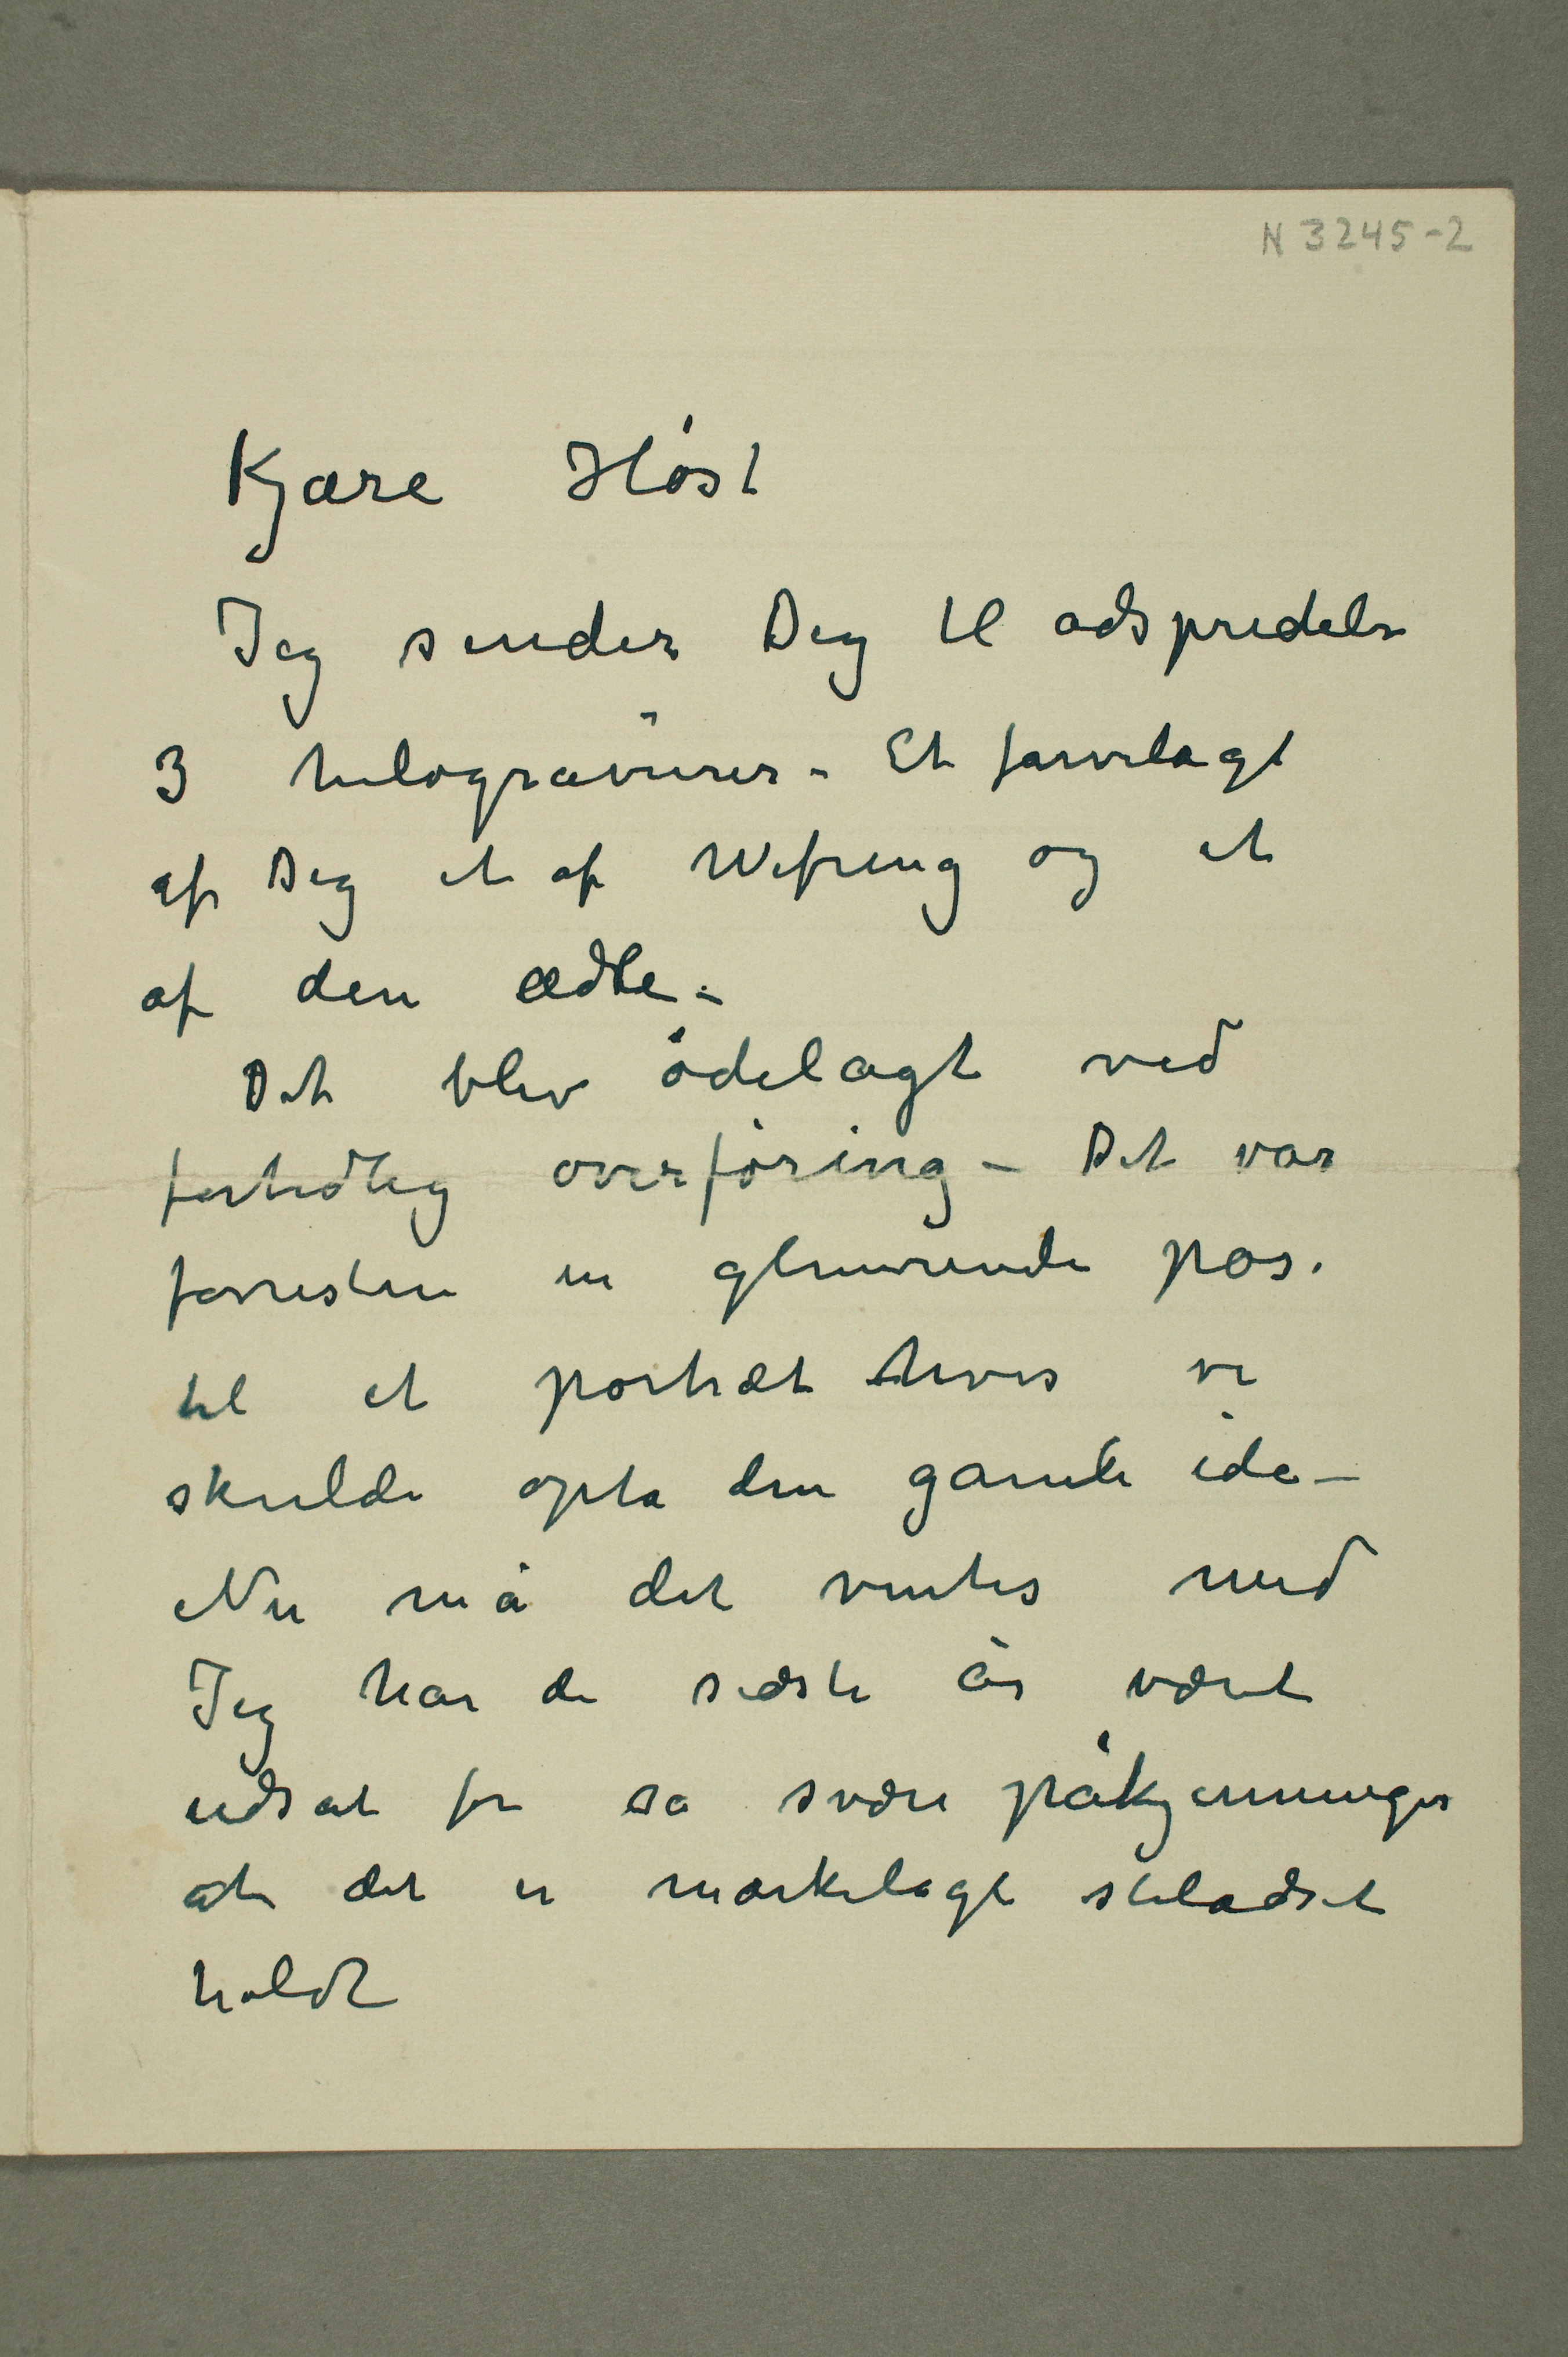 N 3245-2
Kjære Høst
Jeg sender Deg til adspredelse
3 heliogravürer – Et farvelagt
af Deg et af Wefring og et
af den ædle –
Det blev ødelagt ved
forhidlig overføring – Det var
forresten en glimrende pos.
til et portræt hvis vi
skulde opta den gamle ide –
Nu må det ventes med
Jeg har de sidste år været
udsat for så svære påkjenninger
at det er mærkeligt stiladset
holdt